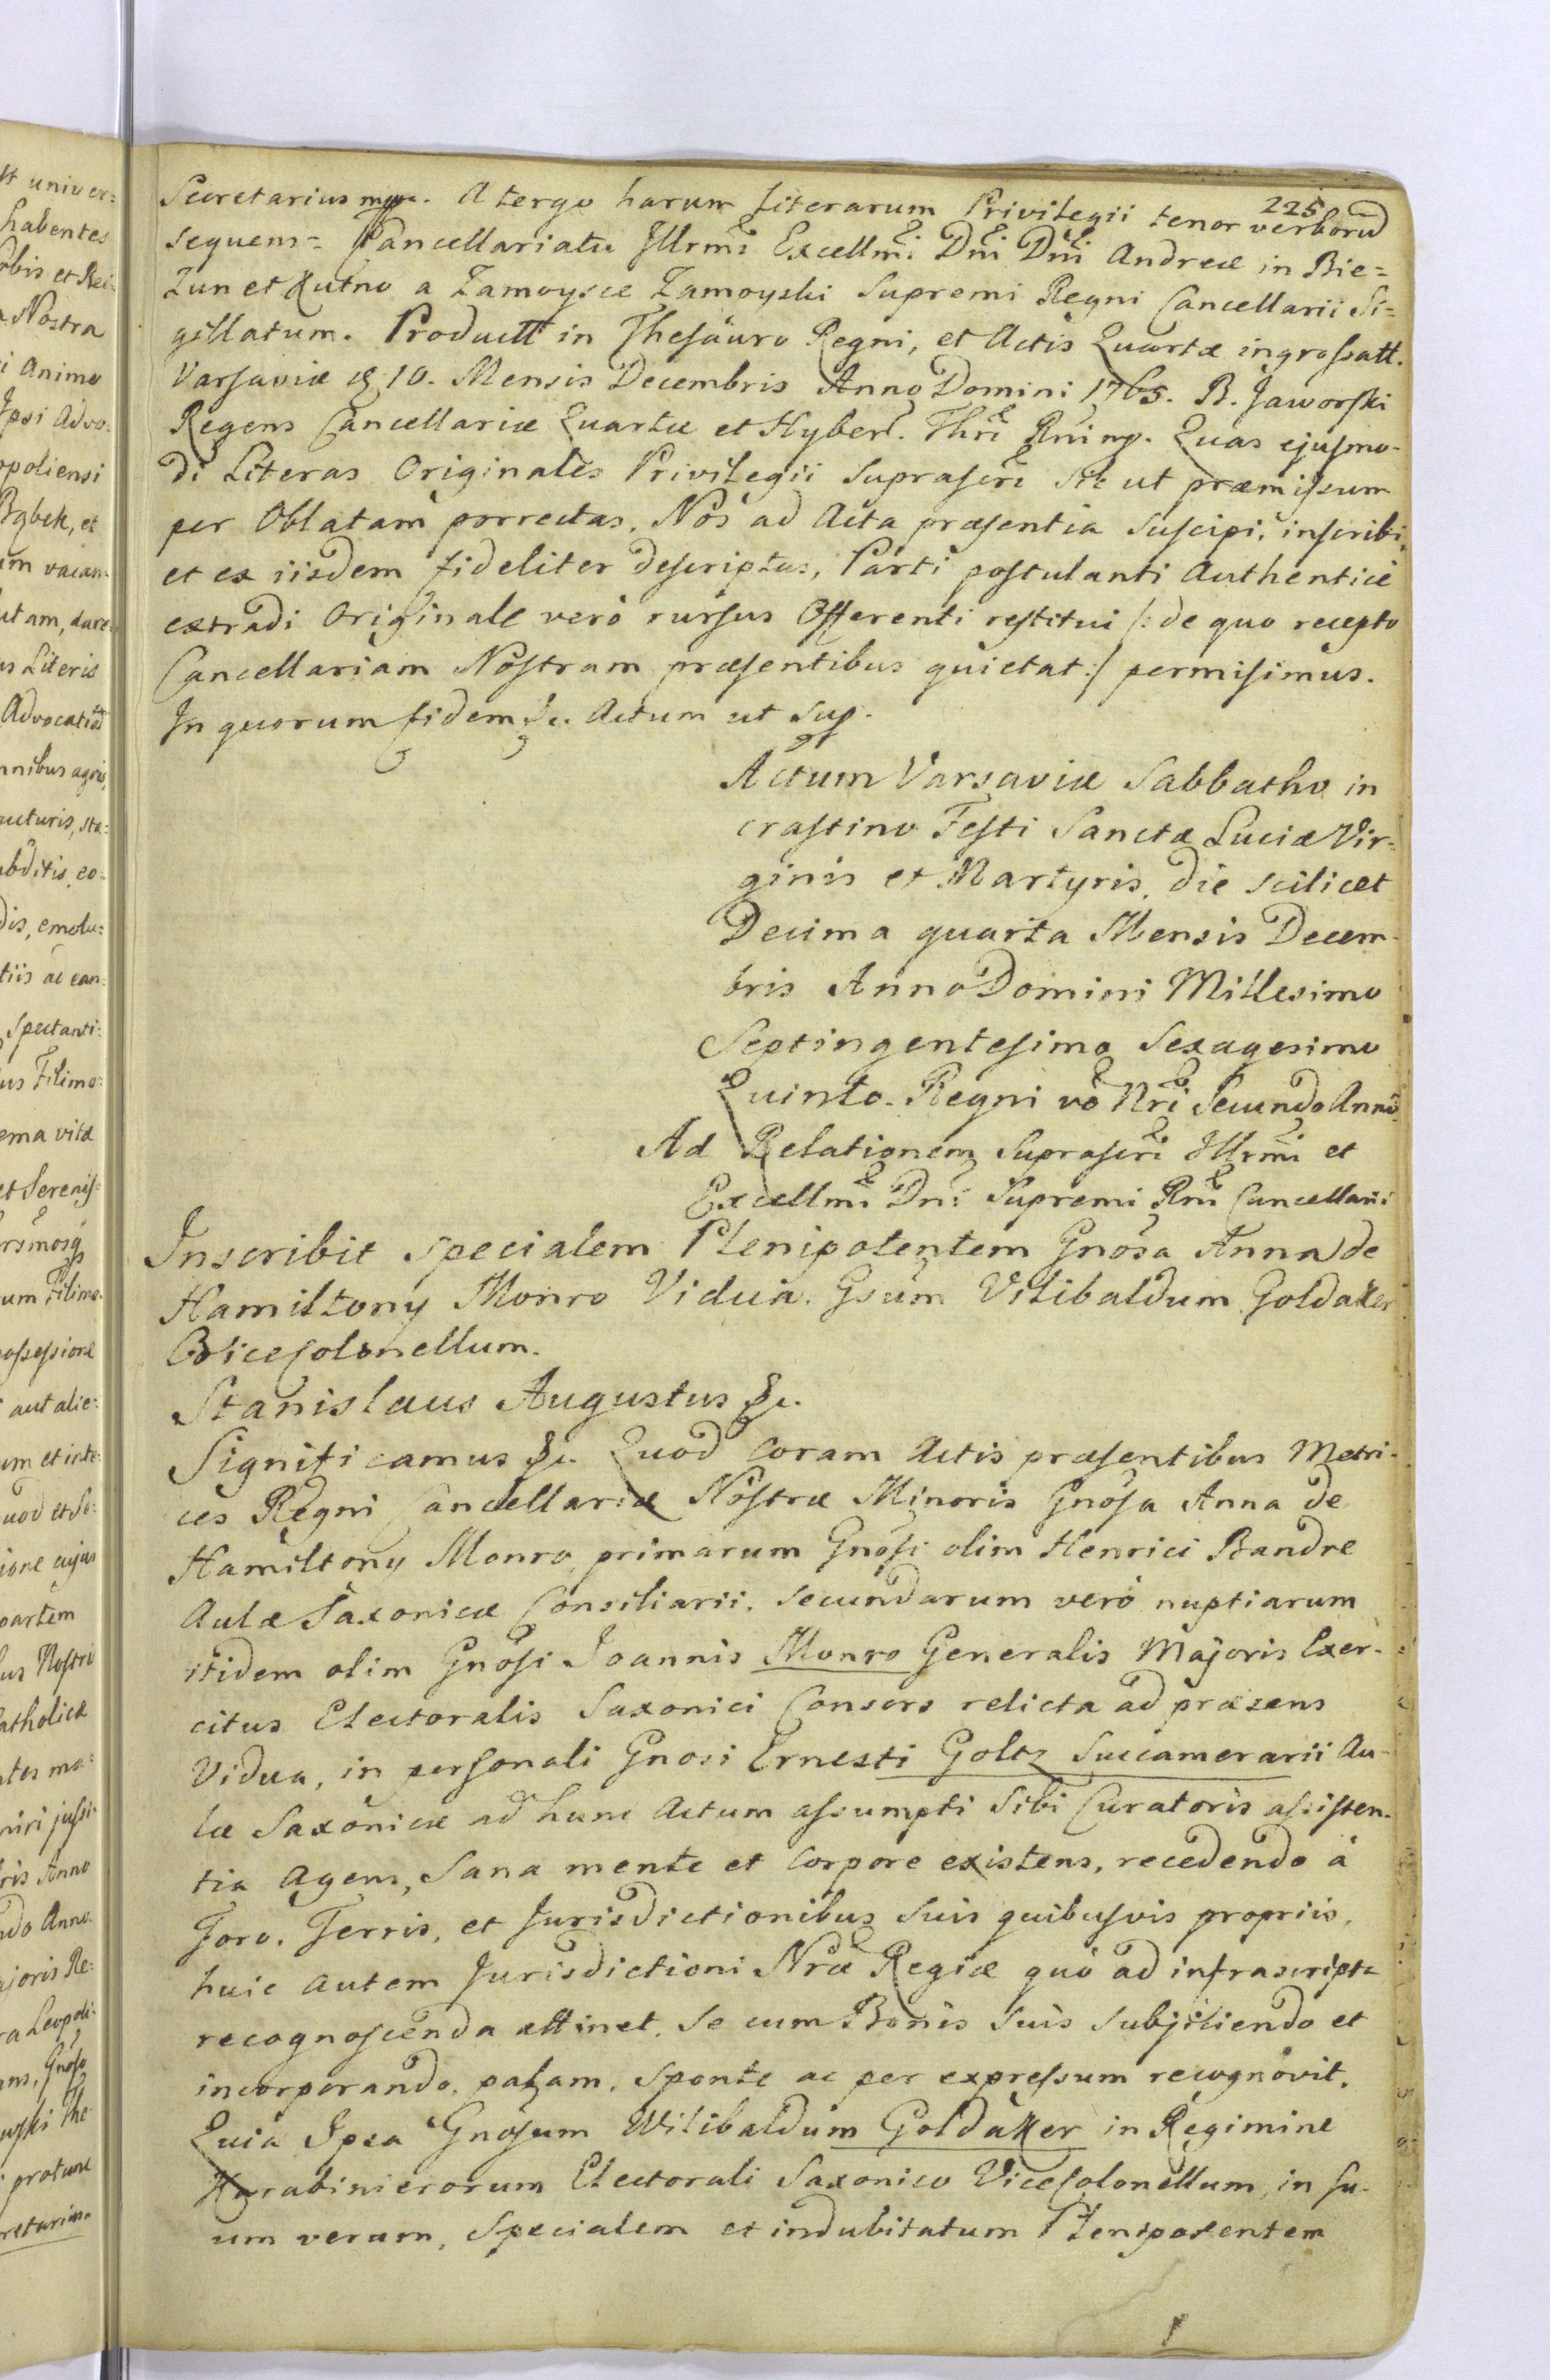 225
Secretarius mpp. A tergo harum Literarum Privilegii tenor verborũ
sequens = Cancellariatu Illrmi Excellmi Dni Dni Andreæ in Bie=
zun et Kutno a Zamoysce Zamoyski Supremi Regni Cancellarii Si=
gillatum. Product in Thesauro Regni, et Actis Quartæ ingrossatt.
Varsaviæ 10. Mensis Decembris Anno Domini 1765. B. Jaworski
Regens Cancellariæ Quartæ et Hybern. Thri Rni mp. Quas ejusmo-
di Literas Originales Privilegii Suprascri sic ut præmissum
per Oblatam porrectas, Nos ad Acta præsentia suscipi, inscribi,
et ex iisdem fideliter descriptas, Parti postulanti Authenticè
extradi Originale verò rursus Offerenti restitui /: de quo recepto
Cancellariam Nostram præsentibus quietat :/ permisimus.
In quorum fidem &c. Actum ut Sup.
Actum Varsaviæ Sabbatho in
crastino Festi Sanctæ Luciæ Vir=
ginis et Martyris, die scilicet
Decima quarta Mensis Decem-
bris Anno Domini Millesimo
Septingentesimo Sexagesimo
Quinto. Regni vo Nri Secundo Anno.
Ad Relationem Suprascri Illrmi et
Excellmi Dni Supremi Rni Cancellarii
Inscribit specialem Plenipotentem Gnosa Anna de
Hamiltony Monro Vidua. Gsum Vilibaldum Goldaker
Vicecolonellum.
Stanislaus Augustus &c.
Significamus &c. Quod Coram Actis præsentibus Metri-
ces Regni Cancellariæ Nostræ Minoris Gnosa Anna de
Hamiltony Monro, primarum Gnosi olim Henrici Bandre
Aulæ Saxonicæ Consiliarii, Secundarum verò nuptiarum
itidem olim Gnosi Joannis Monro Generalis Majoris Exer-
citus Electoralis Saxonici Consors relicta ad præsens
Vidua, in personali Gnosi Ernesti Goltz Succamerarii Au-
læ Saxonicæ ad hunc Actum assumpti Sibi Curatoris assisten-
tia Agens, Sana mente et Corpore existens, recedendo à
Foro, Terris, et Jurisdictionibus Suis quibusvis propriis,
huic autem Jurisdictioni Nræ Regiæ quò ad infrascripta
recognoscenda attinet, Se cum Bonis Suis Subjiciendo et
incorporando, palam, Sponte ac per expressum recognovit.
Quia Ipsa Gnosum Wilibaldum Goldaker in Regimine
Karabinierorum Electorali Saxonico Vicecolonellum, in Su-
um verum, Specialem et indubitatum Plenipotentem